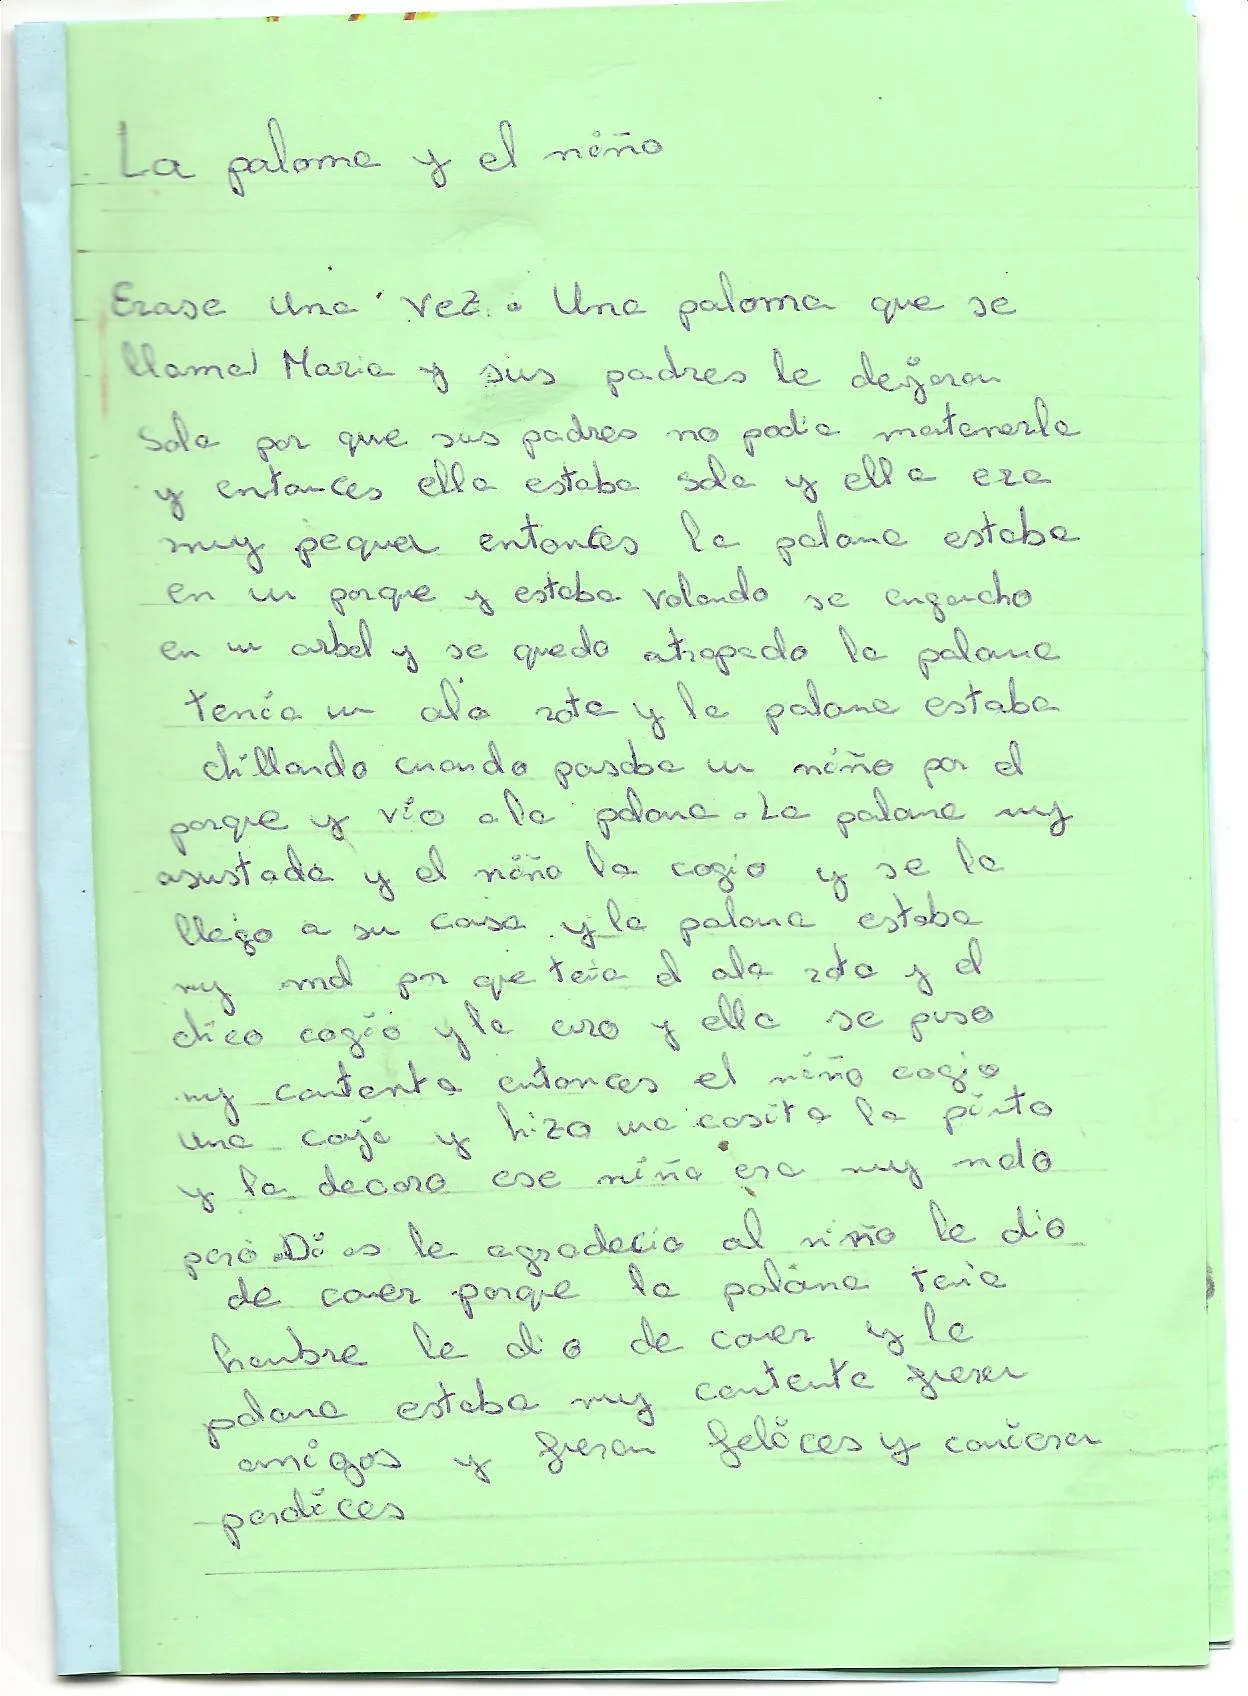 La paloma y el niño
Erase una vez. Una paloma que se
llama Maria y sus padres le dejaron
Sola por que sus padres no podia matenerla
y entonces ella estaba sola y ella era
muy pequer entonces la palona estaba
en un parque y estaba volando se engancho
en un arbol y se quedo atrapado la palona
tenía un ala rota y la palona estaba
chillando cuando pasaba un niño por el
parque y vío a la palona. La palona muy
asustada y el niño la cogio y se la
llego a su casa y la palona estaba
muy mal por que teia el ala rota y el
chico cogio y la curo y ella se puso
muy contenta entonces el niño cogio
una caja y hizo una casita la pinto
y la decoro ese niño era muy malo
pero Dios le agradecio al niño le dio
de comer porque la palona tenia
hambre le dio de comer y la
palona estaba muy contenta fueron
amigos y fueron felices y comieron
perdices